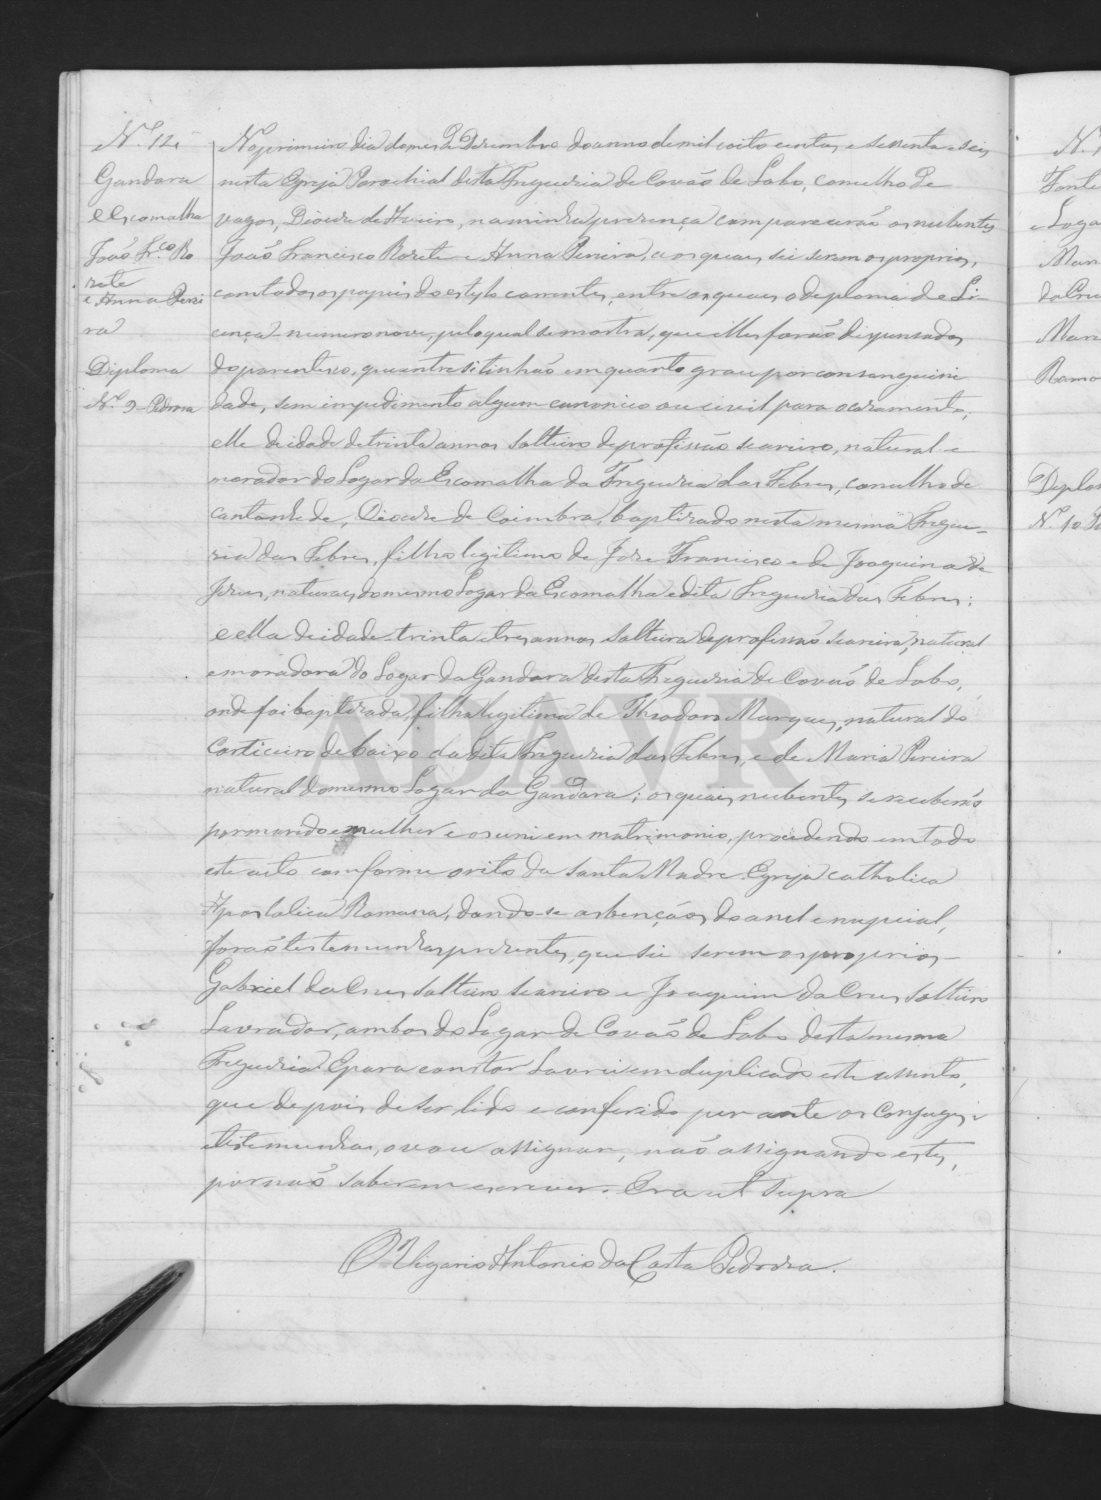 Nº 12.
Gandara
e Escomalha
João Fr.co Ro
zete
e Anna Perei
ra
Diploma
Nº 9 - Pedroza
No primeiro dia do mes de Dezembro do anno de mil oito centos e sessenta e seis
nesta Egreja Parochial desta Freguezia de Covão de Lobo, concelho de
vagos, Diocese de Aveiro, na minha prezença compareceraõ os nubentes
João Francisco Rozete e Anna Pereira, a os quaes sei serem os proprios,
com todos os papeis do estylo correntes, entre os quaes o deploma de Li-
cença numero nove, pelo qual se mostra, que elles foraõ dispensados
do parentesco, que entre si tinhaõ em quarto grau por consanguini
dade, sem impedimento algum canonico ou civil para o cazamento,
elle de idade de trinta annos solteiro de profissaõ seareiro, natural e
morador do Logar da Escomalha da Freguezia das Febres, concelho de
cantanhede, Diocese de Coimbra, baptizado nesta mesma Fregue-
zia das Febres, filho legitimo de Joze Francisco e de Joaquina de
Jezus, naturaes do mesmo Logar da Escomalha e dita Freguezia das Febres;
e ella de idade trinta e tres annos solteira de profissaõ seareira, natural
e moradora do Logar da Gandara desta Freguezia de Covaõ de Lobo,
onde foi baptizada, filha legitima de Theodoro Marques, natural do
Corticeiro de baixo da dita Freguezia das Febres, e de Maria Pereira
natural do mesmo Logar da Gandara; os quaes nubentes se receberaõ
por marido e mulher e os uni em matrimonio, procedendo em todo
este acto comforme o rito da Santa Madre Egreja catholica
Apostolica Romana, dando-se as bençãos do anel e nupcial,
foraõ testemunhas prezentes, que sei serem os proprios
Gabriel da Cruz solteiro seareiro e Joaquim da Cruz solteiro
Lavrador, ambos do Logar de Covaõ de Lobo desta mesma
Freguezia. E para constar Lavrei em duplicado este assento,
que depois de ser lido e conferido per ante os Conjuges e
testemunhas, o vou assignar, naõ assignando estes,
por naõ saberem escrever. Era ut supra
O Vigario Antonio da Costa Pedroza.
ADAVR